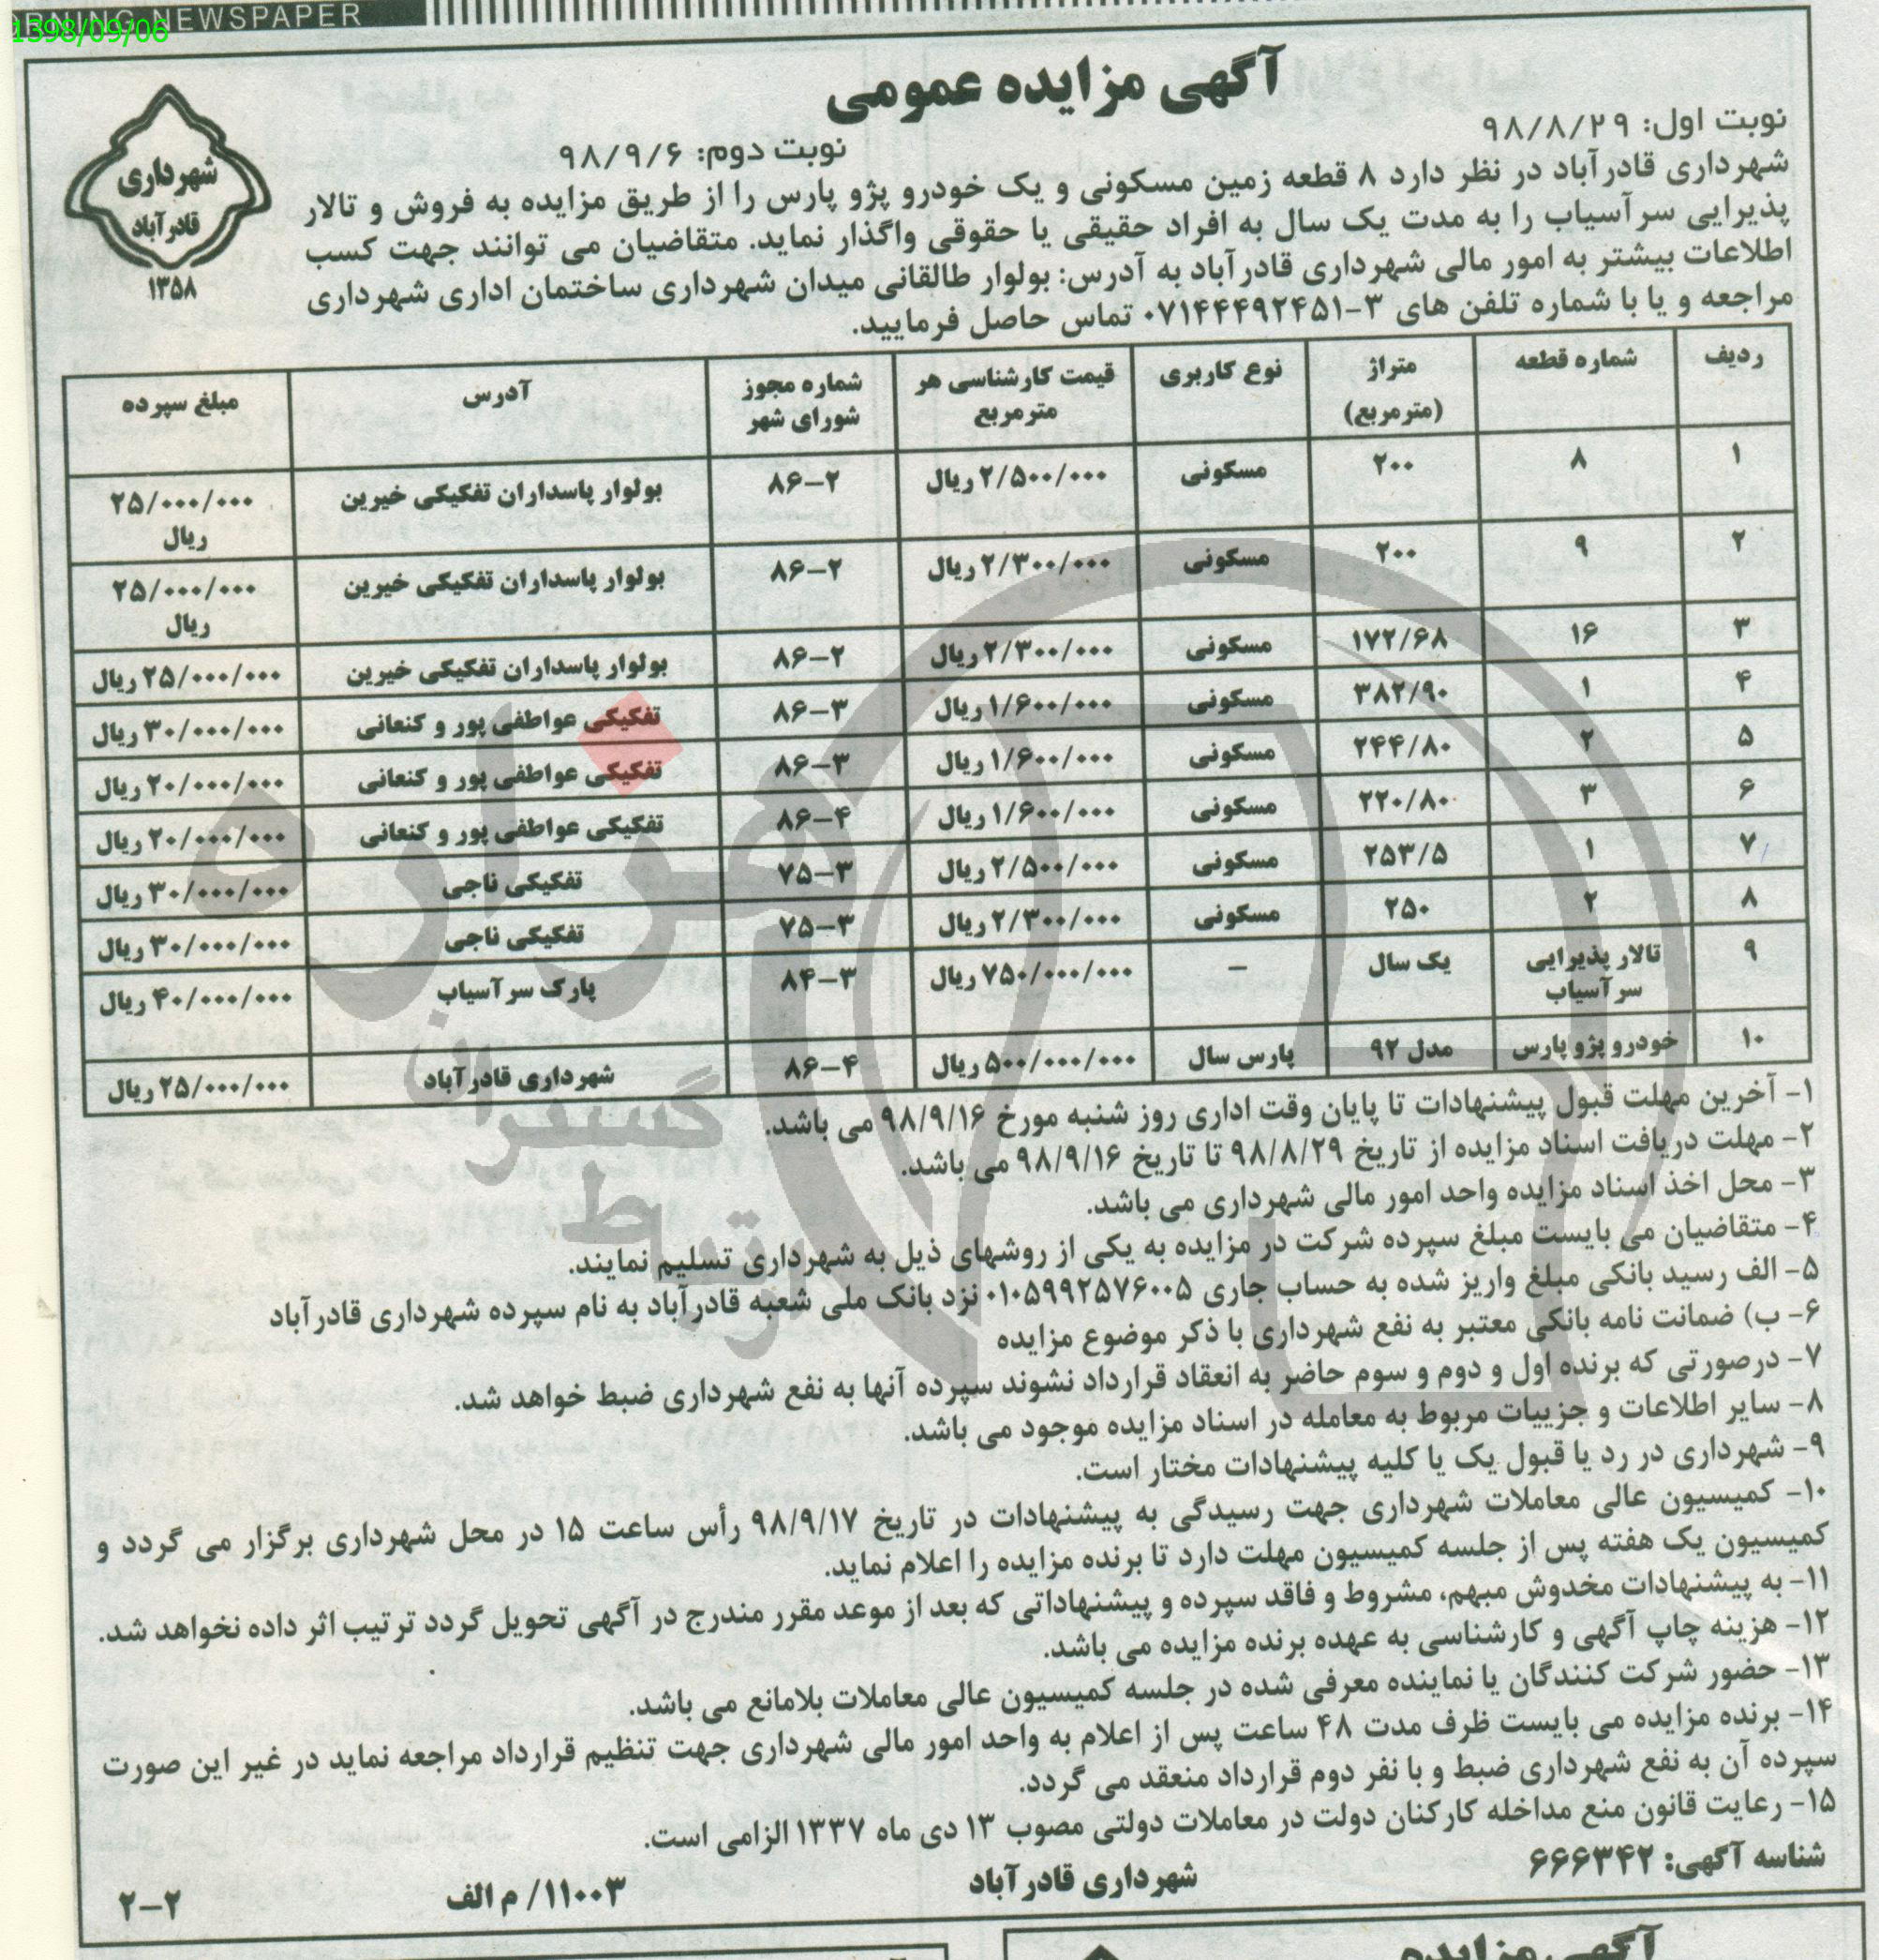 MORNING NEWSPAPER
1398/09/06
آگهی مزایده عمومی
نوبت اول: ۹۸/۸/۲۹
نوبت دوم: ۹۸/۹/۶
شهرداری
قادرآباد
۱۳۵۸
شهرداری قادرآباد در نظر دارد ۸ قطعه زمین مسکونی و یک خودرو پژو پارس را از طریق مزایده به فروش و تالار
پذیرایی سرآسیاب را به مدت یک سال به افراد حقیقی یا حقوقی واگذار نماید. متقاضیان می توانند جهت کسب
اطلاعات بیشتر به امور مالی شهرداری قادرآباد به آدرس: بولوار طالقانی میدان شهرداری ساختمان اداری شهرداری
مراجعه و یا با شماره تلفن های ۳-۰۷۱۴۴۴۹۲۴۵۱ تماس حاصل فرمایید.
ردیف شماره قطعه متراژ (مترمربع) نوع کاربری قیمت کارشناسی هر مترمربع شماره مجوز شورای شهر آدرس مبلغ سپرده
۱ ۸ ۲۰۰ مسکونی ۲/۵۰۰/۰۰۰ ریال ۸۶-۲ بولوار پاسداران تفکیکی خیرین ۲۵/۰۰۰/۰۰۰ ریال
۲ ۹ ۲۰۰ مسکونی ۲/۳۰۰/۰۰۰ ریال ۸۶-۲ بولوار پاسداران تفکیکی خیرین ۲۵/۰۰۰/۰۰۰ ریال
۳ ۱۶ ۱۷۲/۶۸ مسکونی ۲/۳۰۰/۰۰۰ ریال ۸۶-۲ بولوار پاسداران تفکیکی خیرین ۲۵/۰۰۰/۰۰۰ ریال
۴ ۱ ۳۸۲/۹۰ مسکونی ۱/۶۰۰/۰۰۰ ریال ۸۶-۳ تفکیکی عواطفی پور و کنعانی ۳۰/۰۰۰/۰۰۰ ریال
۵ ۲ ۲۴۴/۸۰ مسکونی ۱/۶۰۰/۰۰۰ ریال ۸۶-۳ تفکیکی عواطفی پور و کنعانی ۲۰/۰۰۰/۰۰۰ ریال
۶ ۳ ۲۲۰/۸۰ مسکونی ۱/۶۰۰/۰۰۰ ریال ۸۶-۴ تفکیکی عواطفی پور و کنعانی ۲۰/۰۰۰/۰۰۰ ریال
۷ ۱ ۲۵۳/۵ مسکونی ۲/۵۰۰/۰۰۰ ریال ۷۵-۳ تفکیکی ناجی ۳۰/۰۰۰/۰۰۰ ریال
۸ ۲ ۲۵۰ مسکونی ۲/۳۰۰/۰۰۰ ریال ۷۵-۳ تفکیکی ناجی ۳۰/۰۰۰/۰۰۰ ریال
۹ تالار پذیرایی سرآسیاب یک سال – ۷۵۰/۰۰۰/۰۰۰ ریال ۸۴-۳ پارک سرآسیاب ۴۰/۰۰۰/۰۰۰ ریال
۱۰ خودرو پژو پارس مدل ۹۲ پارس سال ۵۰۰/۰۰۰/۰۰۰ ریال ۸۶-۴ شهرداری قادرآباد ۲۵/۰۰۰/۰۰۰ ریال
۱- آخرین مهلت قبول پیشنهادات تا پایان وقت اداری روز شنبه مورخ ۹۸/۹/۱۶ می باشد.
۲- مهلت دریافت اسناد مزایده از تاریخ ۹۸/۸/۲۹ تا تاریخ ۹۸/۹/۱۶ می باشد.
۳- محل اخذ اسناد مزایده واحد امور مالی شهرداری می باشد.
۴- متقاضیان می بایست مبلغ سپرده شرکت در مزایده به یکی از روشهای ذیل به شهرداری تسلیم نمایند.
۵- الف رسید بانکی مبلغ واریز شده به حساب جاری ۰۱۰۵۹۹۲۵۷۶۰۰۵ نزد بانک ملی شعبه قادرآباد به نام سپرده شهرداری قادرآباد
۶- ب) ضمانت نامه بانکی معتبر به نفع شهرداری با ذکر موضوع مزایده
۷- درصورتی که برنده اول و دوم و سوم حاضر به انعقاد قرارداد نشوند سپرده آنها به نفع شهرداری ضبط خواهد شد.
۸- سایر اطلاعات و جزییات مربوط به معامله در اسناد مزایده موجود می باشد.
۹- شهرداری در رد یا قبول یک یا کلیه پیشنهادات مختار است.
۱۰- کمیسیون عالی معاملات شهرداری جهت رسیدگی به پیشنهادات در تاریخ ۹۸/۹/۱۷ رأس ساعت ۱۵ در محل شهرداری برگزار می گردد و
کمیسیون یک هفته پس از جلسه کمیسیون مهلت دارد تا برنده مزایده را اعلام نماید.
۱۱- به پیشنهادات مخدوش مبهم، مشروط و فاقد سپرده و پیشنهاداتی که بعد از موعد مقرر مندرج در آگهی تحویل گردد ترتیب اثر داده نخواهد شد.
۱۲- هزینه چاپ آگهی و کارشناسی به عهده برنده مزایده می باشد.
۱۳- حضور شرکت کنندگان یا نماینده معرفی شده در جلسه کمیسیون عالی معاملات بلامانع می باشد.
۱۴- برنده مزایده می بایست ظرف مدت ۴۸ ساعت پس از اعلام به واحد امور مالی شهرداری جهت تنظیم قرارداد مراجعه نماید در غیر این صورت
سپرده آن به نفع شهرداری ضبط و با نفر دوم قرارداد منعقد می گردد.
۱۵- رعایت قانون منع مداخله کارکنان دولت در معاملات دولتی مصوب ۱۳ دی ماه ۱۳۳۷ الزامی است.
شناسه آگهی: ۶۶۶۳۴۲
شهرداری قادرآباد
۱۱۰۰۳/ م الف
۲-۲
آگهی مزایده
هزاره
گستران
ارتباط